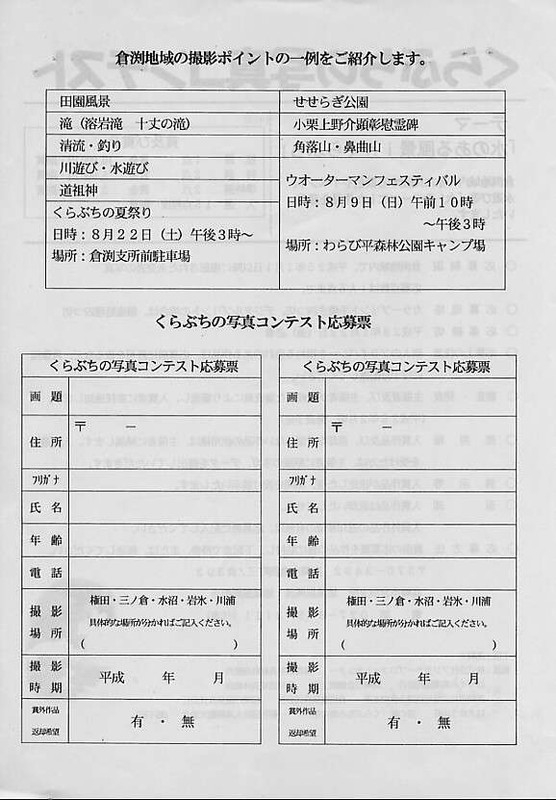 倉渕地域の撮影ポイントの一例をご紹介します。
田園風景
滝（溶岩滝　十丈の滝）
清流・釣り
川遊び・水遊び
道祖神
くらぶちの夏祭り
日時：８月２２日（土）午後３時～
場所：倉渕支所前駐車場
せせらぎ公園
小栗上野介顕彰慰霊碑
角落山・鼻曲山
ウオーターマンフェスティバル
日時：８月９日（日）午前１０時
～午後３時
場所：わらび平森林公園キャンプ場
くらぶちの写真コンテスト応募票
くらぶちの写真コンテスト応募票
画題
住所　〒　－
フリガナ
氏名
年齢
電話
撮影場所　権田・三ノ倉・水沼・岩氷・川浦
具体的な場所が分かればご記入ください。
（　）
撮影時期　平成　年　月
賞外作品返却希望　有・無
くらぶちの写真コンテスト応募票
画題
住所　〒　－
フリガナ
氏名
年齢
電話
撮影場所　権田・三ノ倉・水沼・岩氷・川浦
具体的な場所が分かればご記入ください。
（　）
撮影時期　平成　年　月
賞外作品返却希望　有・無